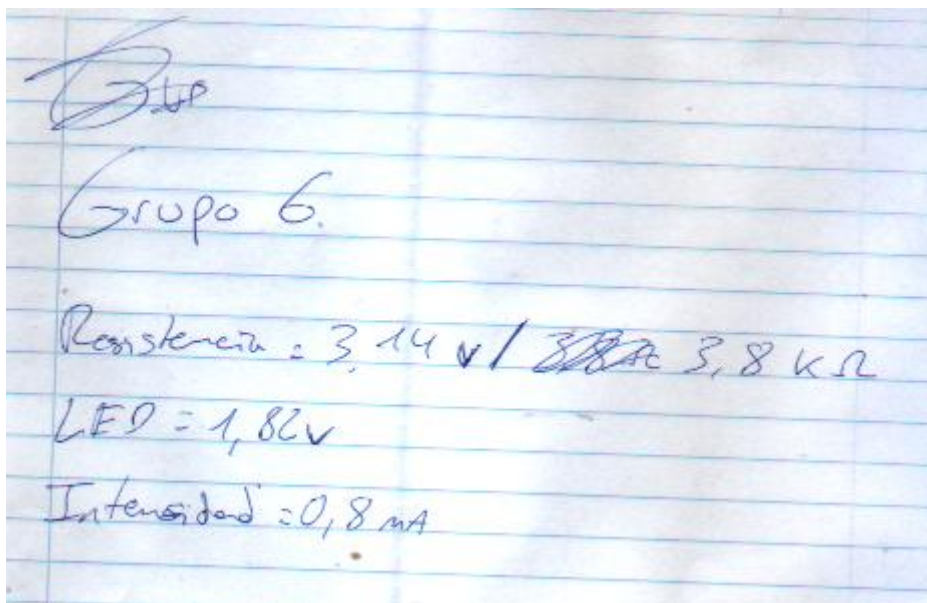 Grupo 6.
Resistencia = 3,14 v / 3,8 KΩ
LED = 1,82v
Intensidad = 0,8 mA